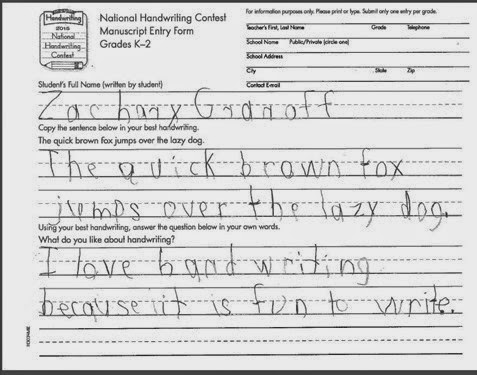 Handwriting
2015
National
Handwriting
Contest
National Handwriting Contest
Manuscript Entry Form
Grades K–2
For information purposes only. Please print or type. Submit only one entry per grade.
Teacher's First, Last Name Grade Telephone
School Name Public/Private (circle one)
School Address
City State Zip
Contact E-mail
Student's Full Name (written by student)
Zachary Granoff
Copy the sentence below in your best handwriting.
The quick brown fox jumps over the lazy dog.
The quick brown fox
jumps over the lazy dog.
Using your best handwriting, answer the question below in your own words.
What do you like about handwriting?
I love handwriting
because it is fun to write.